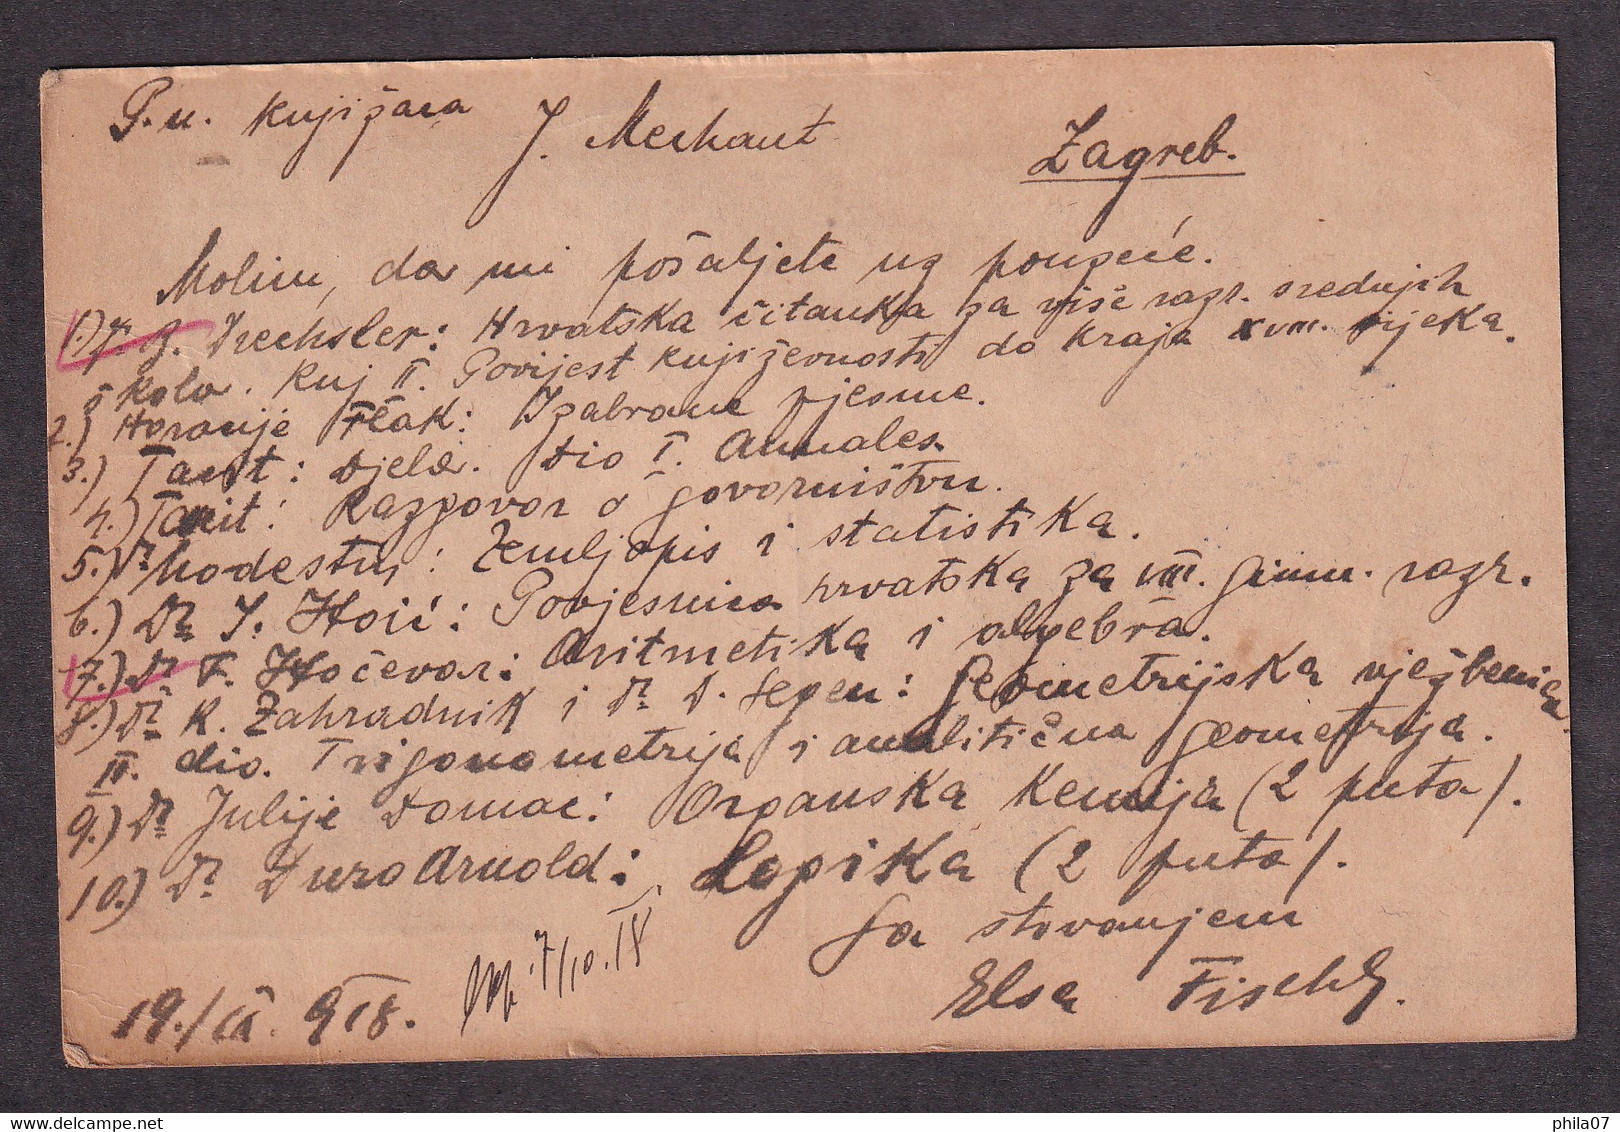 P.n. Knjižara J. Merhaut Zagreb.
Molim, da mi pošaljete uz pouzeće.
1.) J. Drechsler: Hrvatska čitanka za više razr. srednjih
škola. Knj II. Povijest književnosti do kraja XVIII. vijeka.
2.) Horacije Flak: Izabrane pjesme.
3.) Tacit: Djela. Dio I. Annales.
4.) Tacit: Razgovor o govorništvu.
5.) Dr Modestin: Zemljopis i statistika.
6.) Dr I. Hoić: Povjesnica hrvatska za VIII. gimn. razr.
7.) Dr F. Hočevar: Aritmetika i algebra.
8.) Dr K. Zahradnik i Dr D. Segen: Geometrijska vježbenica
II. dio. Trigonometrija i analitična geometrija.
9.) Dr Julije Domac: Organska Kemija (2 puta).
10.) Dr Đuro Arnold: Logika (2 puta).
Sa štovanjem
7/10.18
Elsa Fischl.
19./IX. 918.
phila07